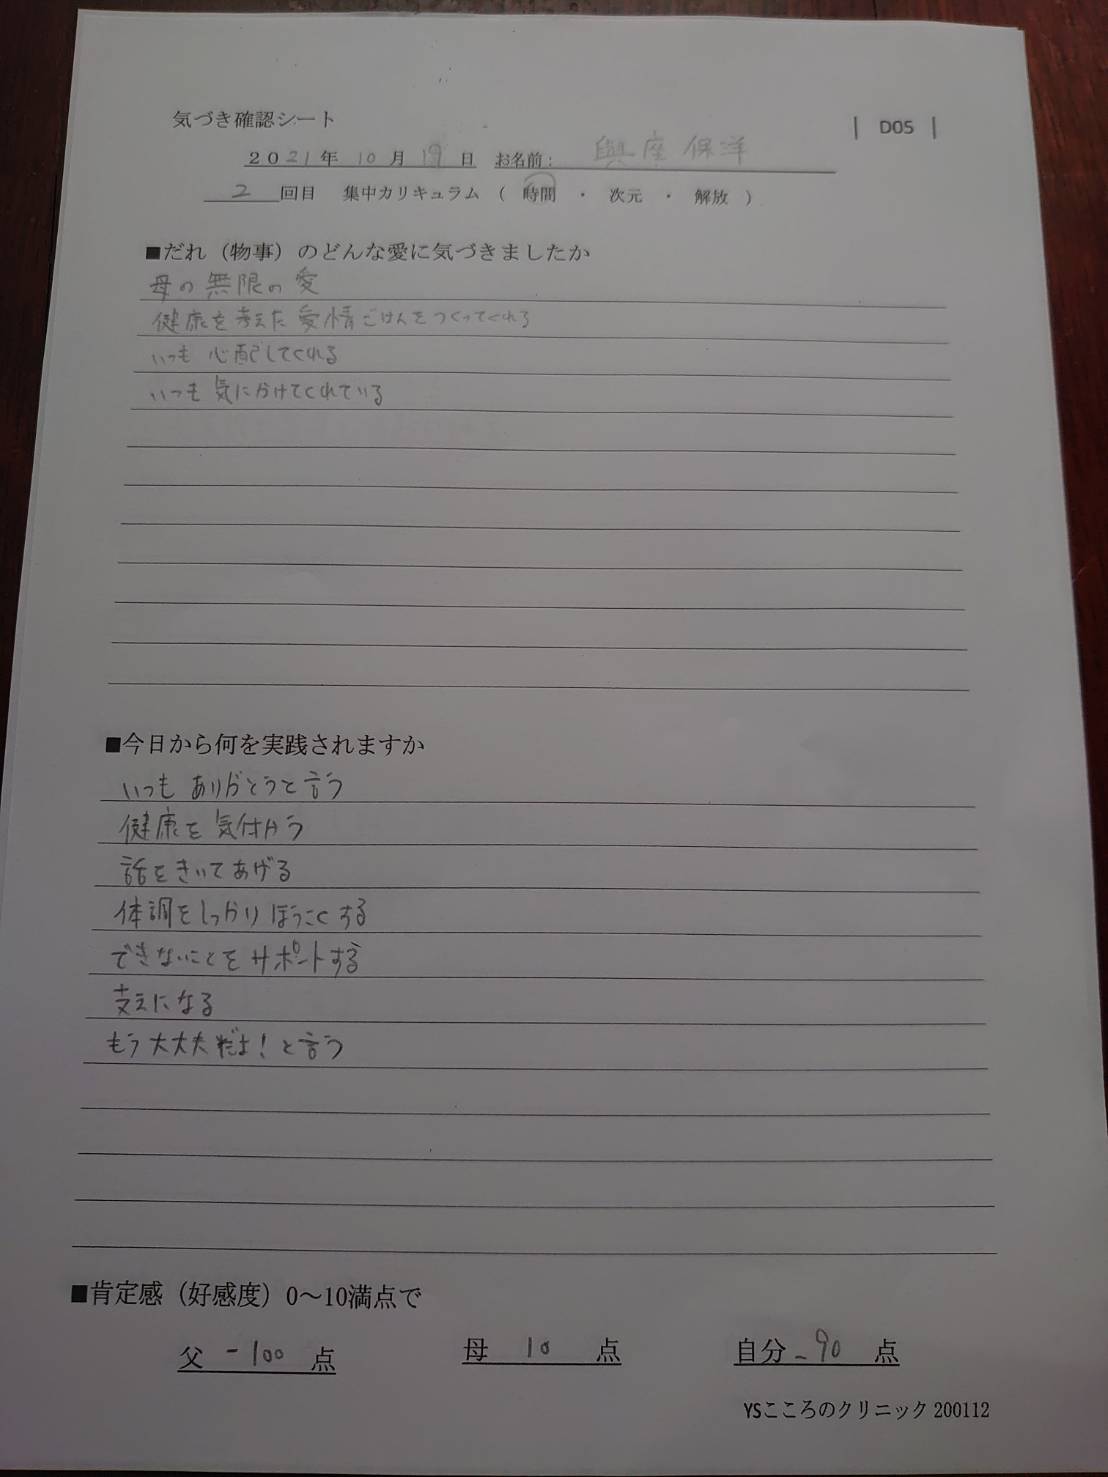 気づき確認シート
| D05 |
2021年 10月 19日 お名前： 與座 保洋
2 回目 集中カリキュラム （ 時間 ・ 次元 ・ 解放 ）
■だれ（物事）のどんな愛に気づきましたか
母の無限の愛
健康を考えた愛情ごはんをつくってくれる
いつも心配してくれる
いつも気にかけてくれている
■今日から何を実践されますか
いつもありがとうと言う
健康を気付かう
話をきいてあげる
体調をしっかりほうこくする
できないことをサポートする
支えになる
もう大丈夫だよ！と言う
■肯定感（好感度）0～10満点で
父 -100 点 母 10 点 自分 -90 点
YSこころのクリニック 200112